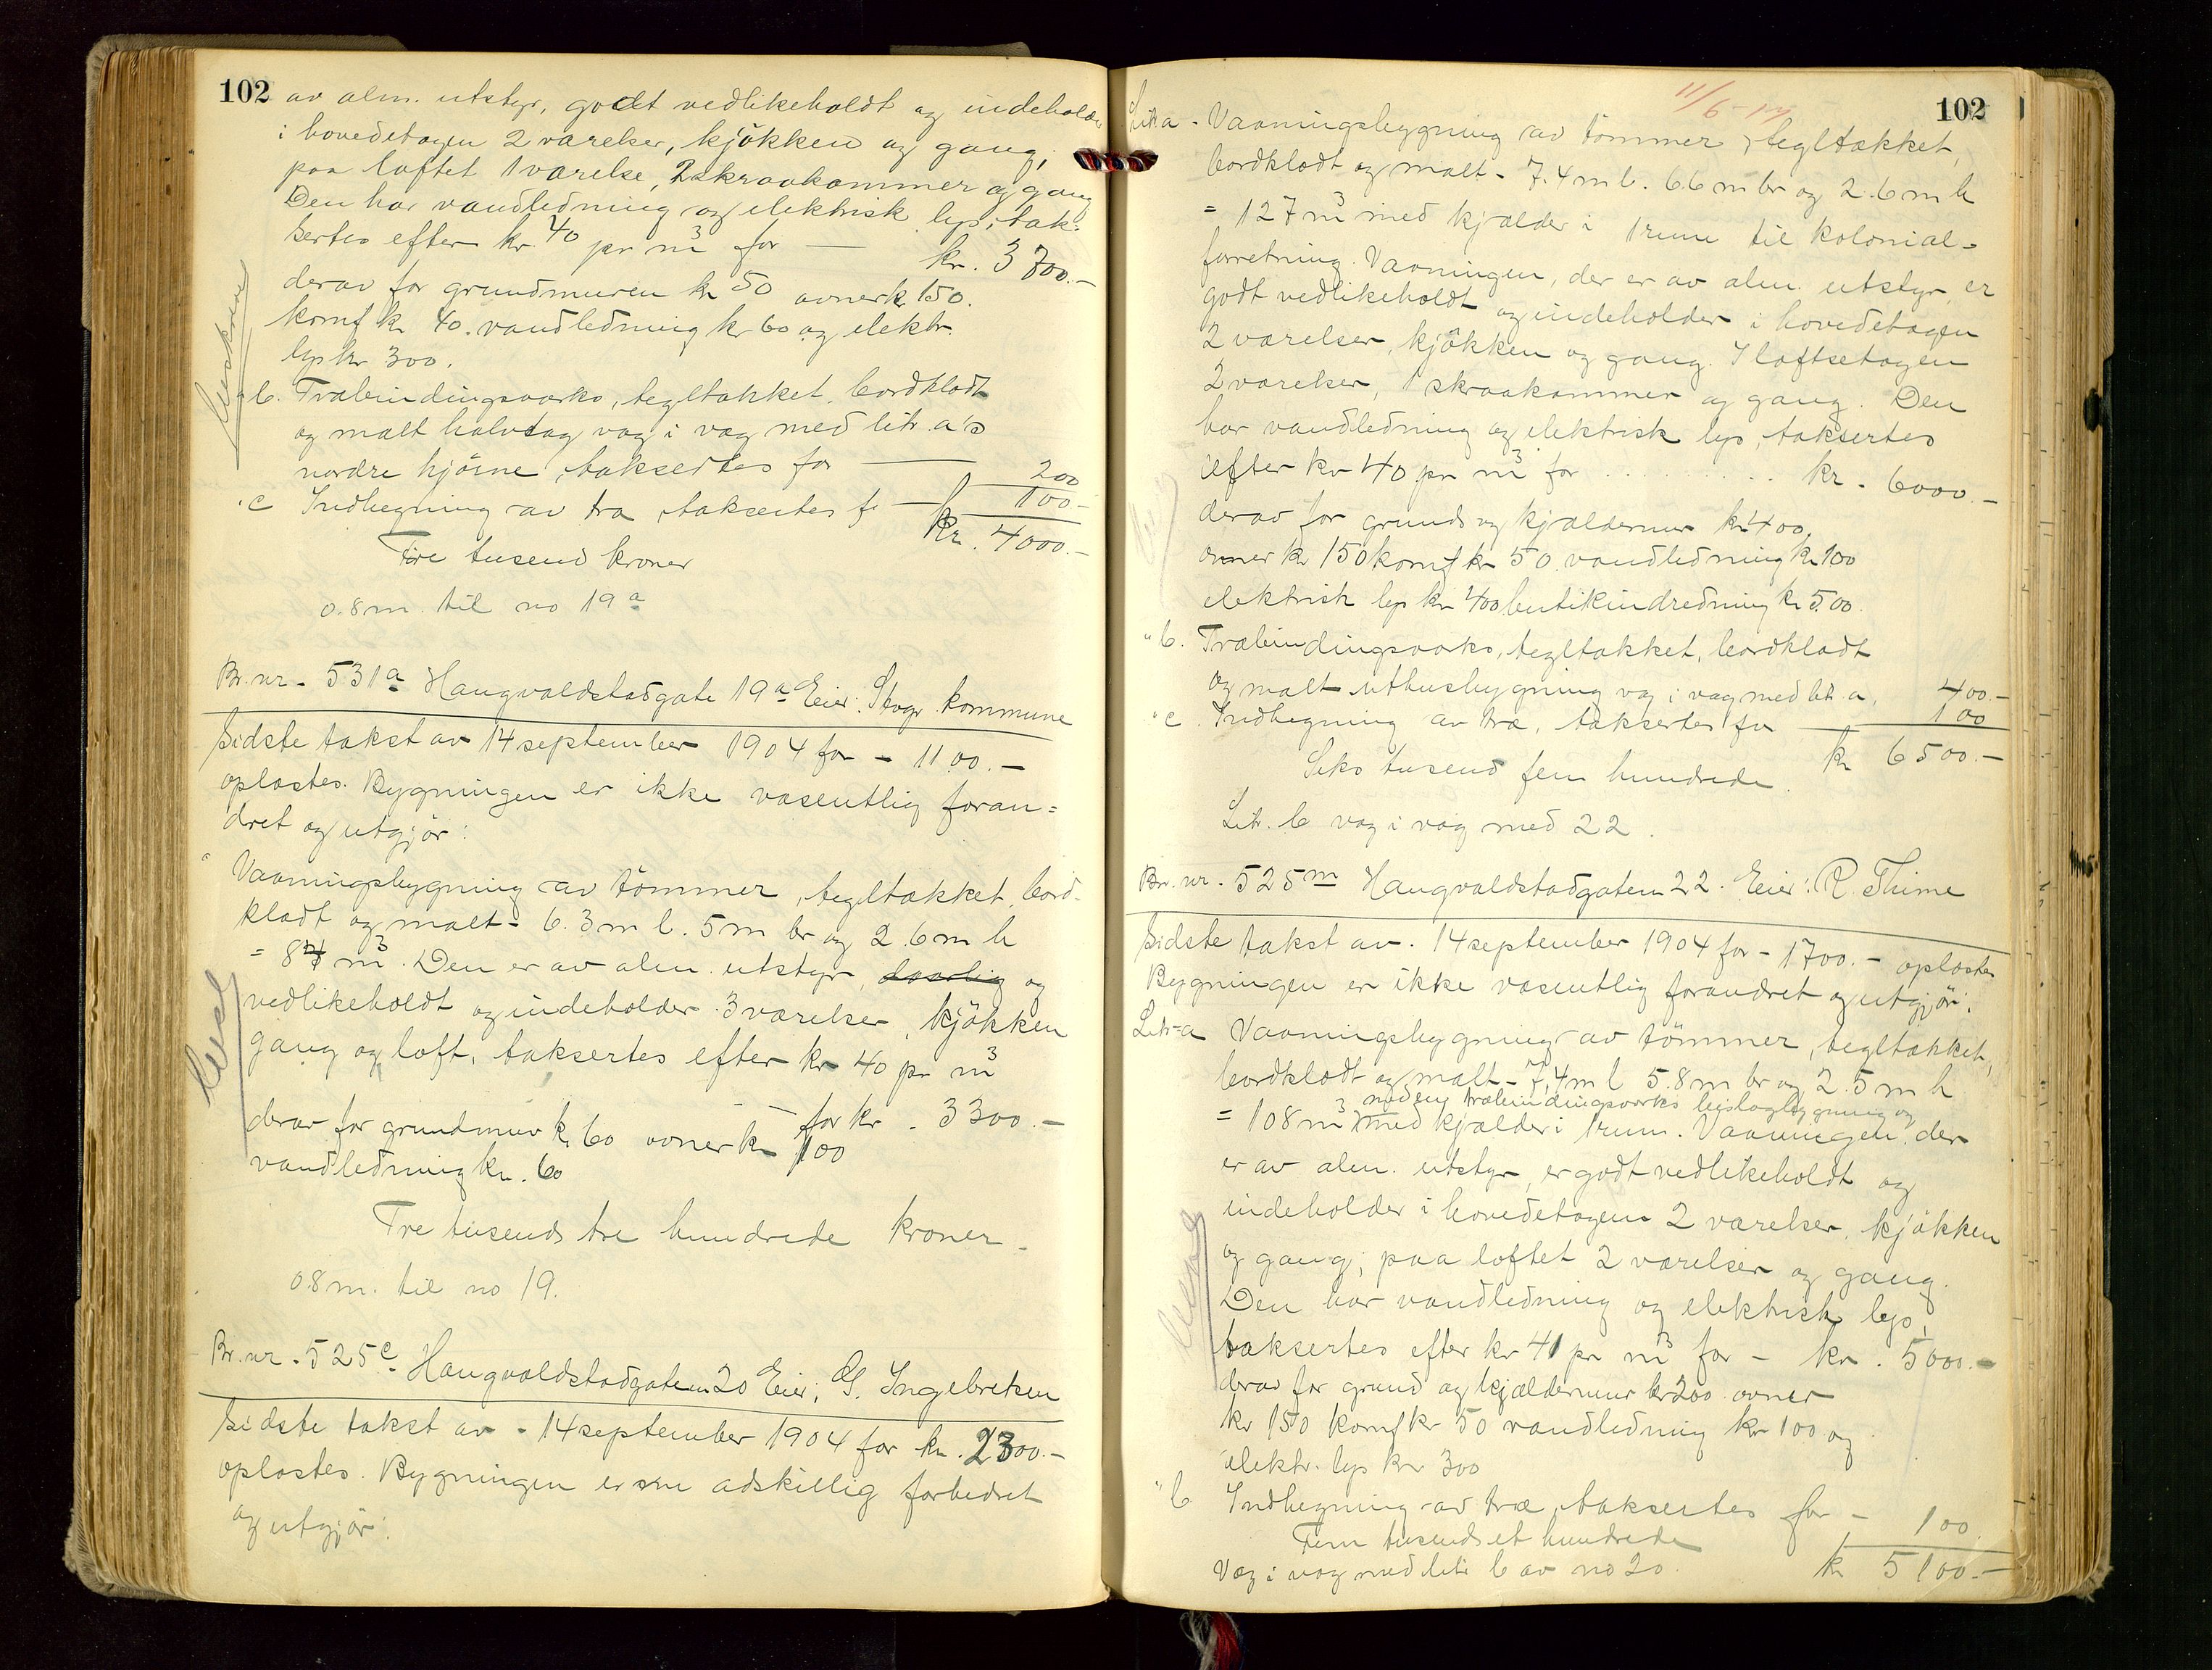 102
av alm. utstyr, godt vedlikeholdt og indeholder
i hovedetagen 2 værelser, kjökken og gang,
paa loftet 1 værelse, 2 skraakammer og gang
Den har vandledning og elektrisk lys, tak-
sertes efter kr. 40 pr m³ for — kr. 3700.-
derav for grundmuren kr 50 ovner kr 150.
komf kr 40. vandledning kr 60 og elektr.
lys kr 300.
" b. Træbindingsværks, tegltækket, bordklædt
og malt halvtag væg i væg med litr. a's
nordre hjörne, taksertes for — 200
" c Indhegning av træ, taksertes f. — 100.-
Kr. 4000.-
Fire tusend kroner
0.8 m. til no 19 a
Br. nr. 531 a Haugvaldstadgate 19 a Eier: Stvgr. kommune
Sidste takst av 14 september 1904 for - 1100.-
oplæstes. Bygningen er ikke væsentlig foran=
dret og utgjör:
" Vaaningsbygning av tömmer, tegltækket, bord-
klædt og malt - 6.3 m l. 5 m br og 2.6 m h
= 8 m³. Den er av alm. utstyr, daarlig og
vedlikeholdt og indeholder 3 værelser, kjökken
gang og loft, taksertes efter kr 40 pr m³
for kr. 3300.-
derav for grundmur kr 60 ovner kr 100
vandledning kr. 60
Tre tusend tre hundrede kroner.
0.8 m. til no 19.
Br. nr. 525 c Haugvaldstadgaten 20 Eier: G. Ingebretsen
Sidste takst av - 14 september 1904 for kr. 2300.-
oplæstes. Bygningen er adskillig forbedret
og utgjör:
102
11/6-
Litr. a - Vaaningsbygning av tömmer, tegltækket,
bordklædt og malt - 7.4 m l. 6.6 m br og 2.6 m h
= 127 m³ med kjælder i 1 rum til kolonial-
forretning. Vaaningen, der er av alm. utstyr, er
godt vedlikeholdt og indeholder i hovedetagen
2 værelser, kjökken og gang. I loftsetagen
2 værelser, 1 skraakammer og gang. Den
har vandledning og elektrisk lys, taksertes
efter kr 40 pr m³ for . . . . . . . . kr. 6000.-
derav for grund og kjældermur kr 400,
ovner kr 150 komf kr 50. vandledning kr 100
elektrisk lys kr 400 butikindredning kr 500.
" b. Træbindingsværks, tegltækket, bordklædt
og malt uthusbygning væg i væg med litr. a, 400.-
" c. Indhegning av træ, taksertes for — 100
kr 6500.-
Seks tusend fem hundrede
Litr. b væg i væg med 22.
Br. nr. 525 m Haugvaldstadgaten 22. Eier: R. Thime
Sidste takst av. 14 september 1904 for - 1700.- oplæstes
Bygningen er ikke væsentlig forandret og utgjör:
Litr. a Vaaningsbygning av tömmer, tegltækket,
bordklædt og malt - 7.4 m l 5.8 m br og 2.5 m h
med ny træbindingsverks bislagbygning og
= 108 m³ med kjælder i 1 rum. Vaaningen, der
er av alm. utstyr, er godt vedlikeholdt og
indeholder i hovedetagen 2 værelser, kjökken
og gang, paa loftet 2 værelser og gang.
Den har vandledning og elektrisk lys,
taksertes efter kr 41 pr m³ for - kr. 5000.-
derav for grund og kjældermur kr 200 ovner
kr 150 komf kr 50 vandledning kr 100 og
elektr. lys kr 300
" b Indhegning av træ, taksertes for - 100.
Fem tusend et hundrede
kr 5100.-
Væg i væg med litr b av no 20.